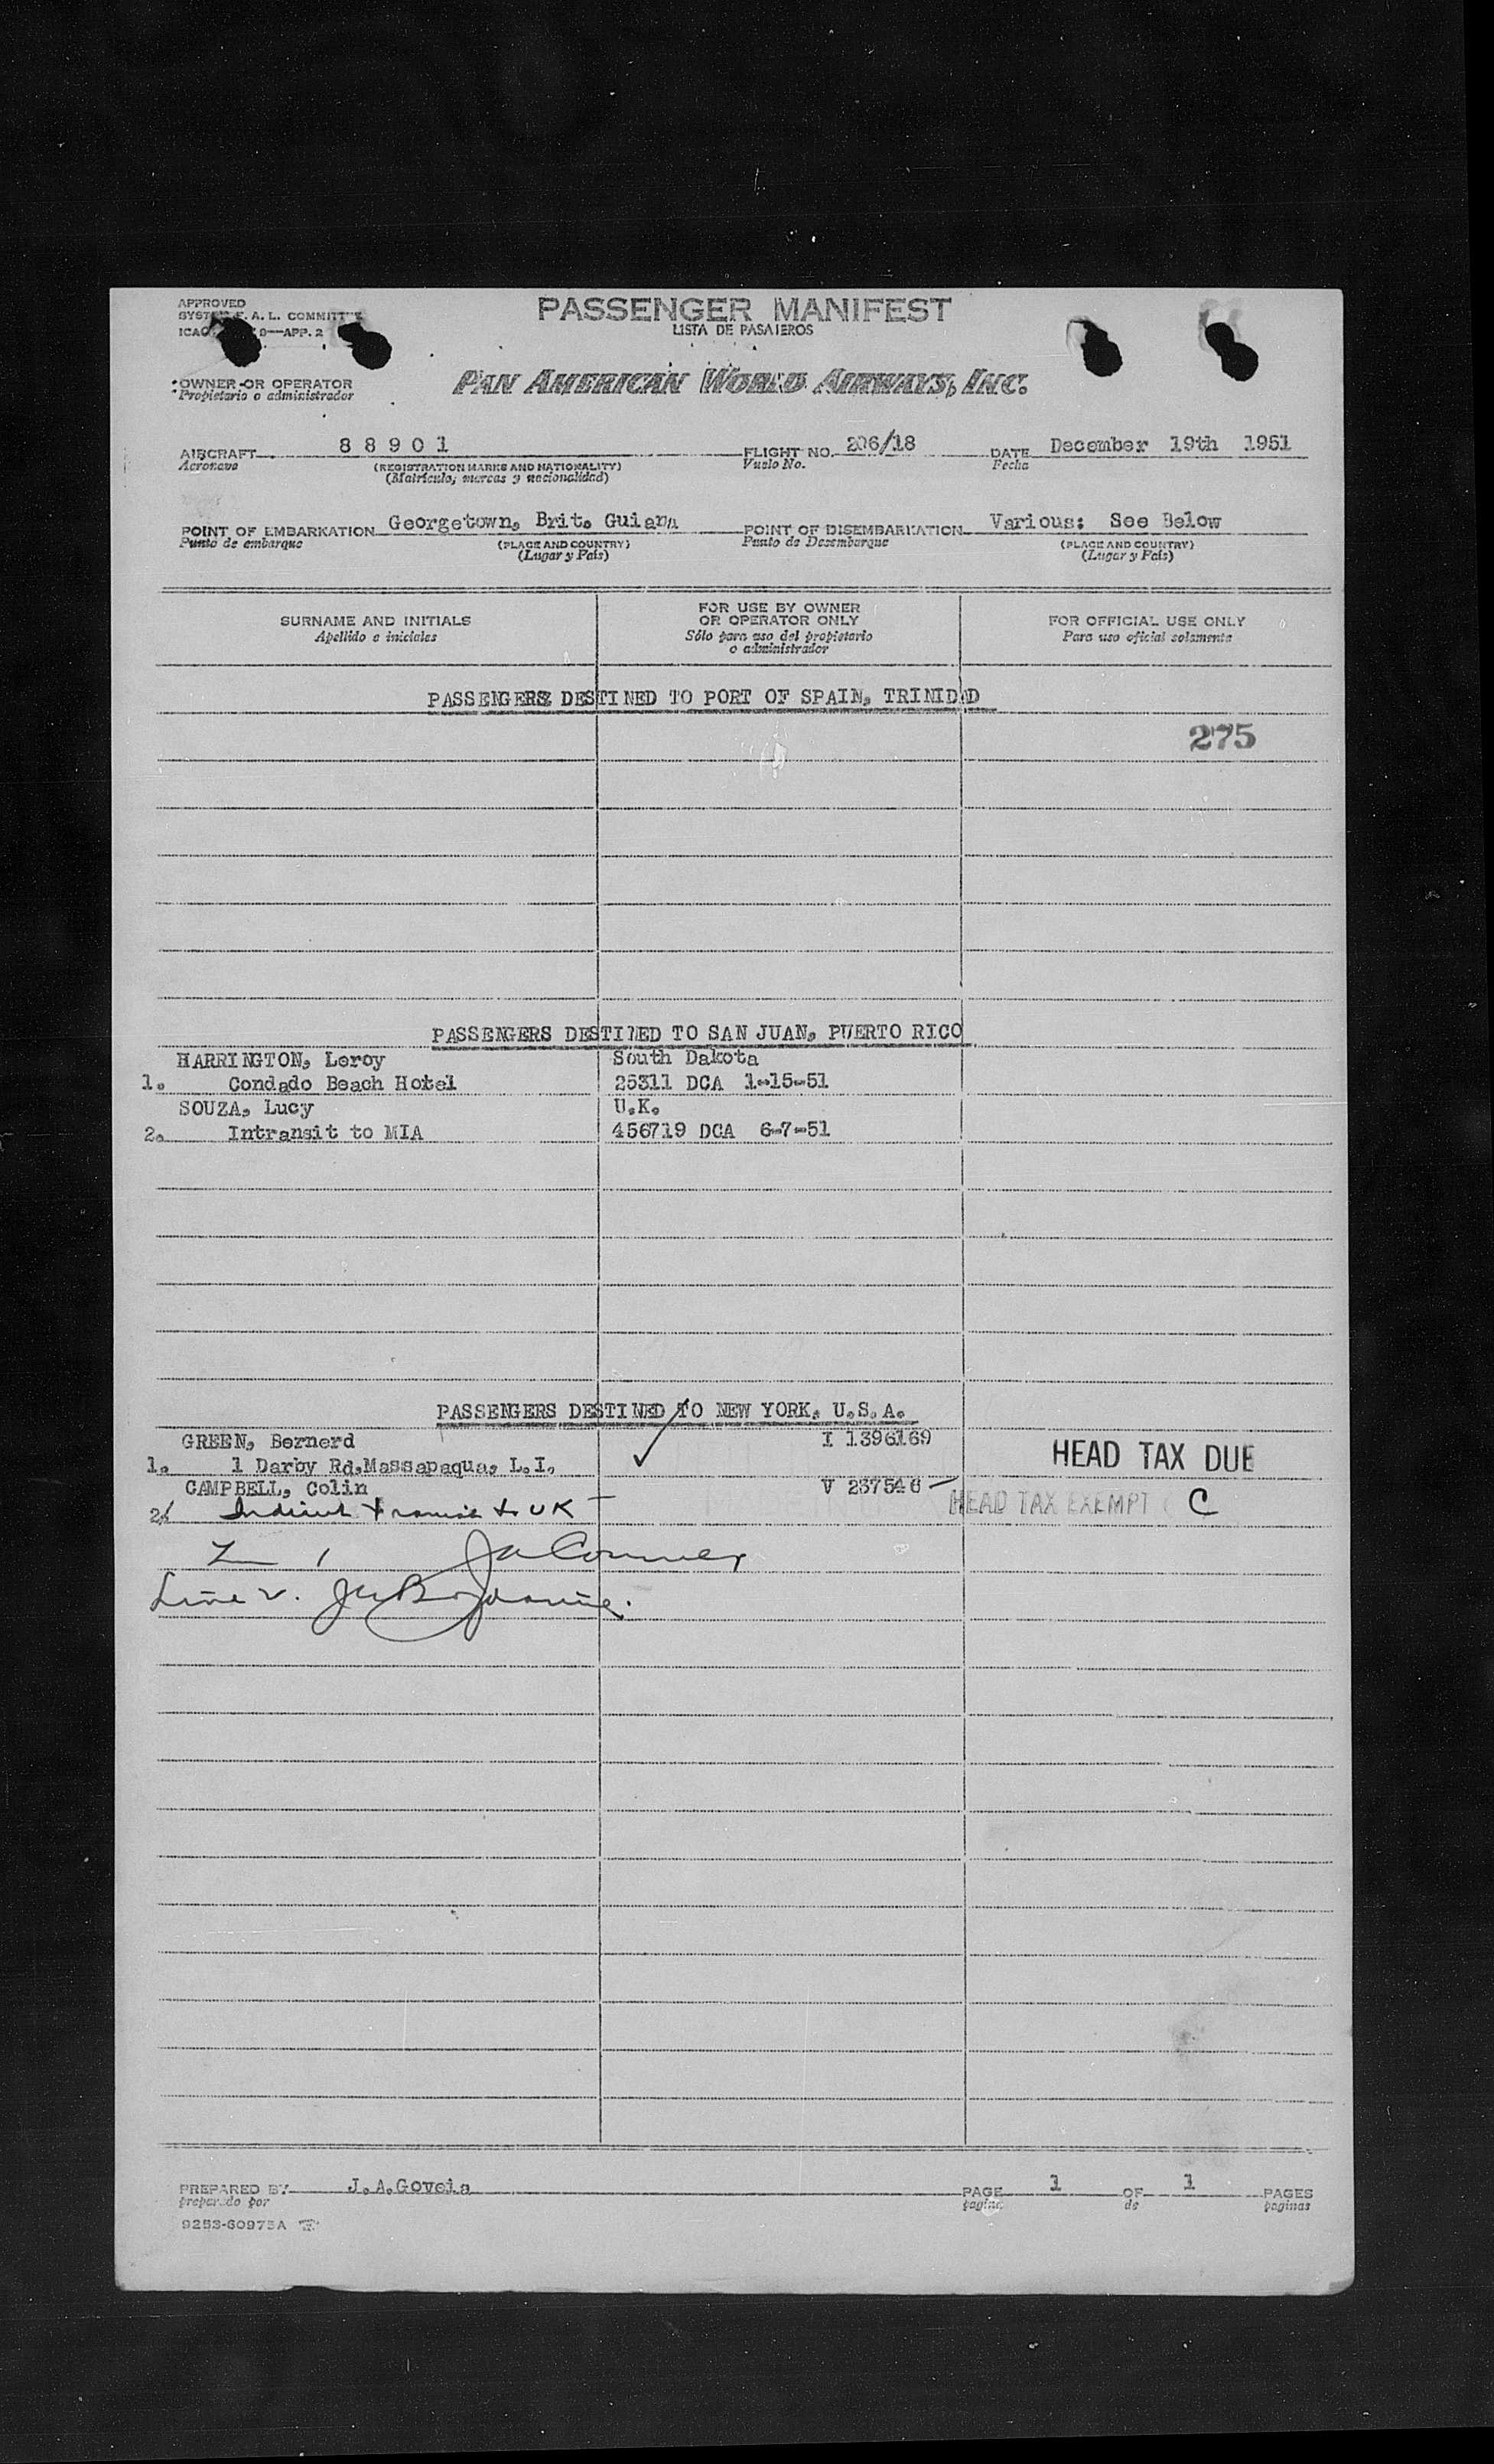 APPROVED
SYSTEM F. A. L. COMMITTEE
ICAO 9—APP. 2
PASSENGER MANIFEST
LISTA DE PASAJEROS
OWNER OR OPERATOR
Propietario o administrador
PAN AMERICAN WORLD AIRWAYS, INC.
AIRCRAFT 88901 FLIGHT NO. 206/18 DATE December 19th 1951
Aeronave (REGISTRATION MARKS AND NATIONALITY) Vuelo No. Fecha
(Matrícula, marcas y nacionalidad)
POINT OF EMBARKATION Georgetown, Brit. Guiana POINT OF DISEMBARKATION Various: See Below
Punto de embarque (PLACE AND COUNTRY) Punto de Desembarque (PLACE AND COUNTRY)
(Lugar y País) (Lugar y País)
SURNAME AND INITIALS FOR USE BY OWNER OR OPERATOR ONLY FOR OFFICIAL USE ONLY
Apellido e iniciales Sólo para uso del propietario o administrador Para uso oficial solamente
PASSENGERS DESTINED TO PORT OF SPAIN, TRINIDAD
275
PASSENGERS DESTINED TO SAN JUAN, PUERTO RICO
HARRINGTON, Leroy South Dakota
1. Condado Beach Hotel 25311 DCA 1-15-51
SOUZA, Lucy U.K.
2. Intransit to MIA 456719 DCA 6-7-51
PASSENGERS DESTINED TO NEW YORK, U.S.A.
GREEN, Bernerd I 1396169
1. 1 Darby Rd.Massapaqua, L.I. HEAD TAX DUE
CAMPBELL, Colin V 237546
2. Indirect transit to UK HEAD TAX EXEMPT C
Line 2.
PREPARED BY J.A.Goveia PAGE 1 OF 1 PAGES
preparado por pagina de paginas
9253-60975A